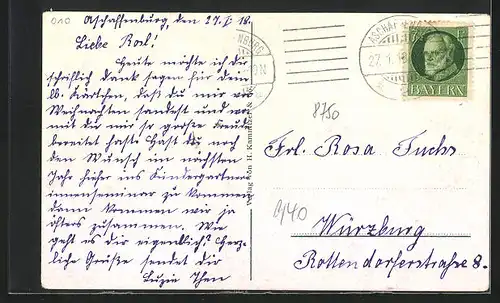 010
Aschaffenburg, den 27. I. 18.
Liebe Rosl!
Heute möchte ich dir
schriftlich dank sagen für dein
lb. Kärtchen, das du mir von
Weihnachten sandest und wo
mit du mir so große Freude
bereitet hast. Hast du noch
den Wunsch im nächsten
Jahr hieher ins Kindergartner
innenseminar zu kommen
dann kommen wir ja
öfters zusammen. Wie
geht es dir eigentlich? Herz-
liche Grüße sendet dir
Luzie Then
Verlag von H.
ASCHAFFENBURG
27. 1. 18
BAYERN
8750
Frl. Rosa Fuchs
940
Würzburg
Rottendorferstraße 8.